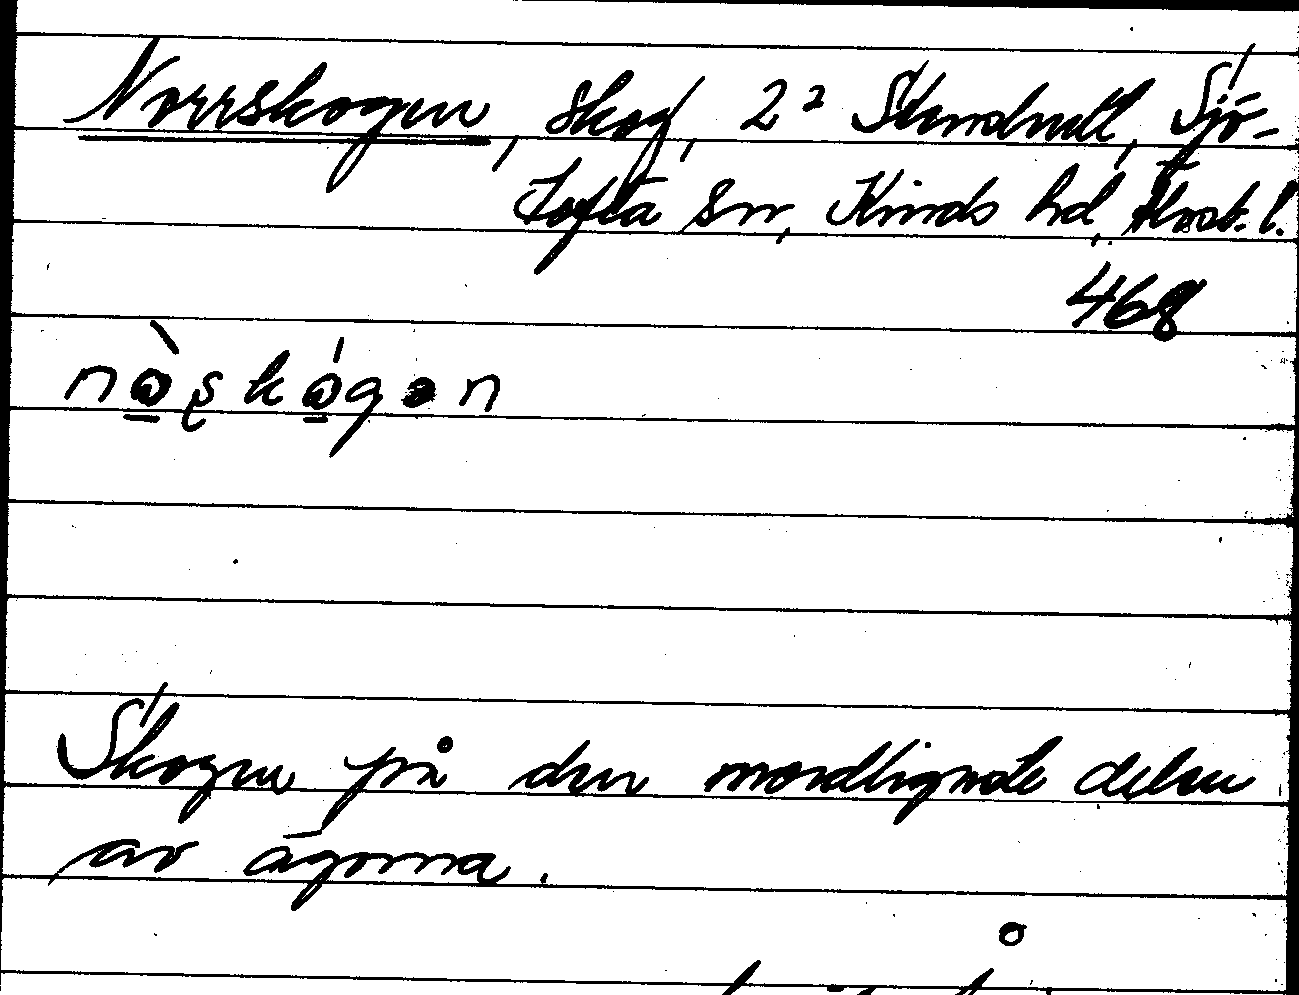 Norrskogen, skog, 2² Standhult, Sjö-
tofta sn, Kinds hd, Älvsb. l.
468
Skogen på den nordligaste delen
av ägorna.